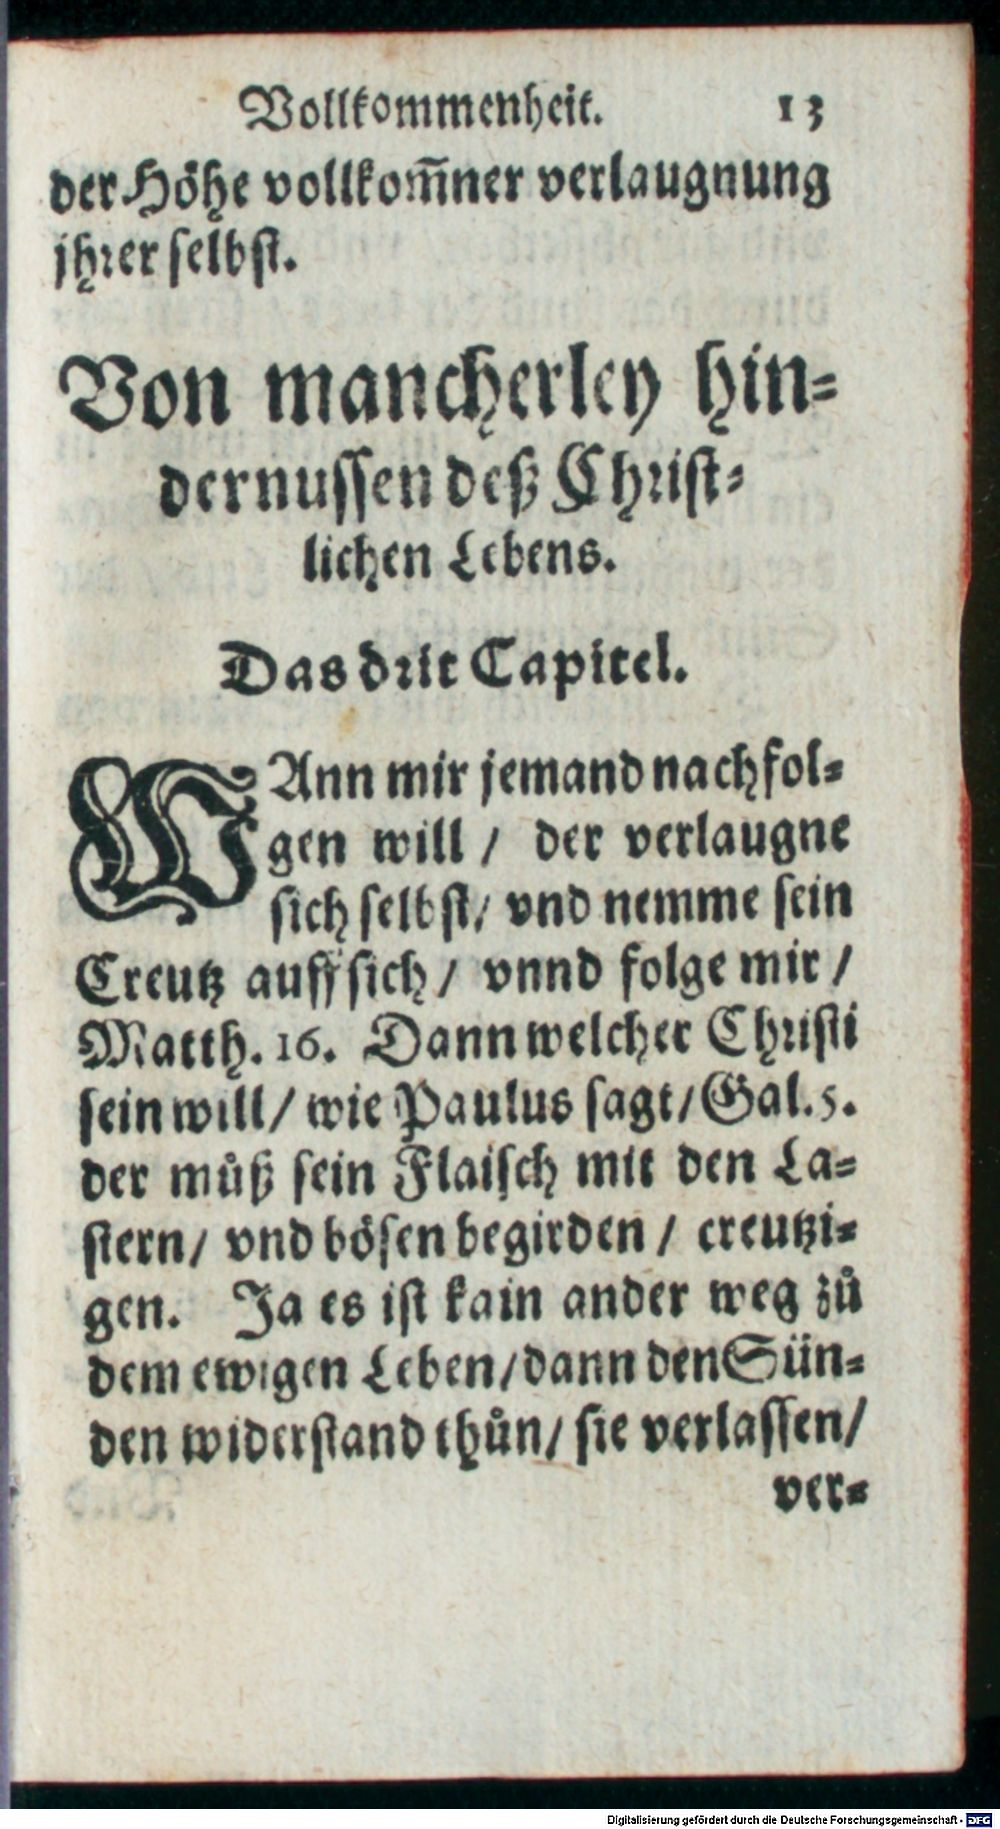 Vollkommenheit. 13
der Höhe vollkom̃ner verlaugnung
jhrer selbst.
Von mancherley hin-
dernussen deß Christ-
lichen Lebens.
Das drit Capitel.
WAnn mir jemand nachfol-
gen will / der verlaugne
sich selbst / vnd nemme sein
Creutz auff sich / vnnd folge mir /
Matth. 16. Dann welcher Christi
sein will / wie Paulus sagt / Gal. 5.
der můß sein Flaisch mit den La-
stern / vnd bösen begirden / creutzi-
gen. Ja es ist kain ander weg zů
dem ewigen Leben / dann den Sün-
den widerstand thůn / sie verlassen /
ver-
Digitalisierung gefördert durch die Deutsche Forschungsgemeinschaft - DFG